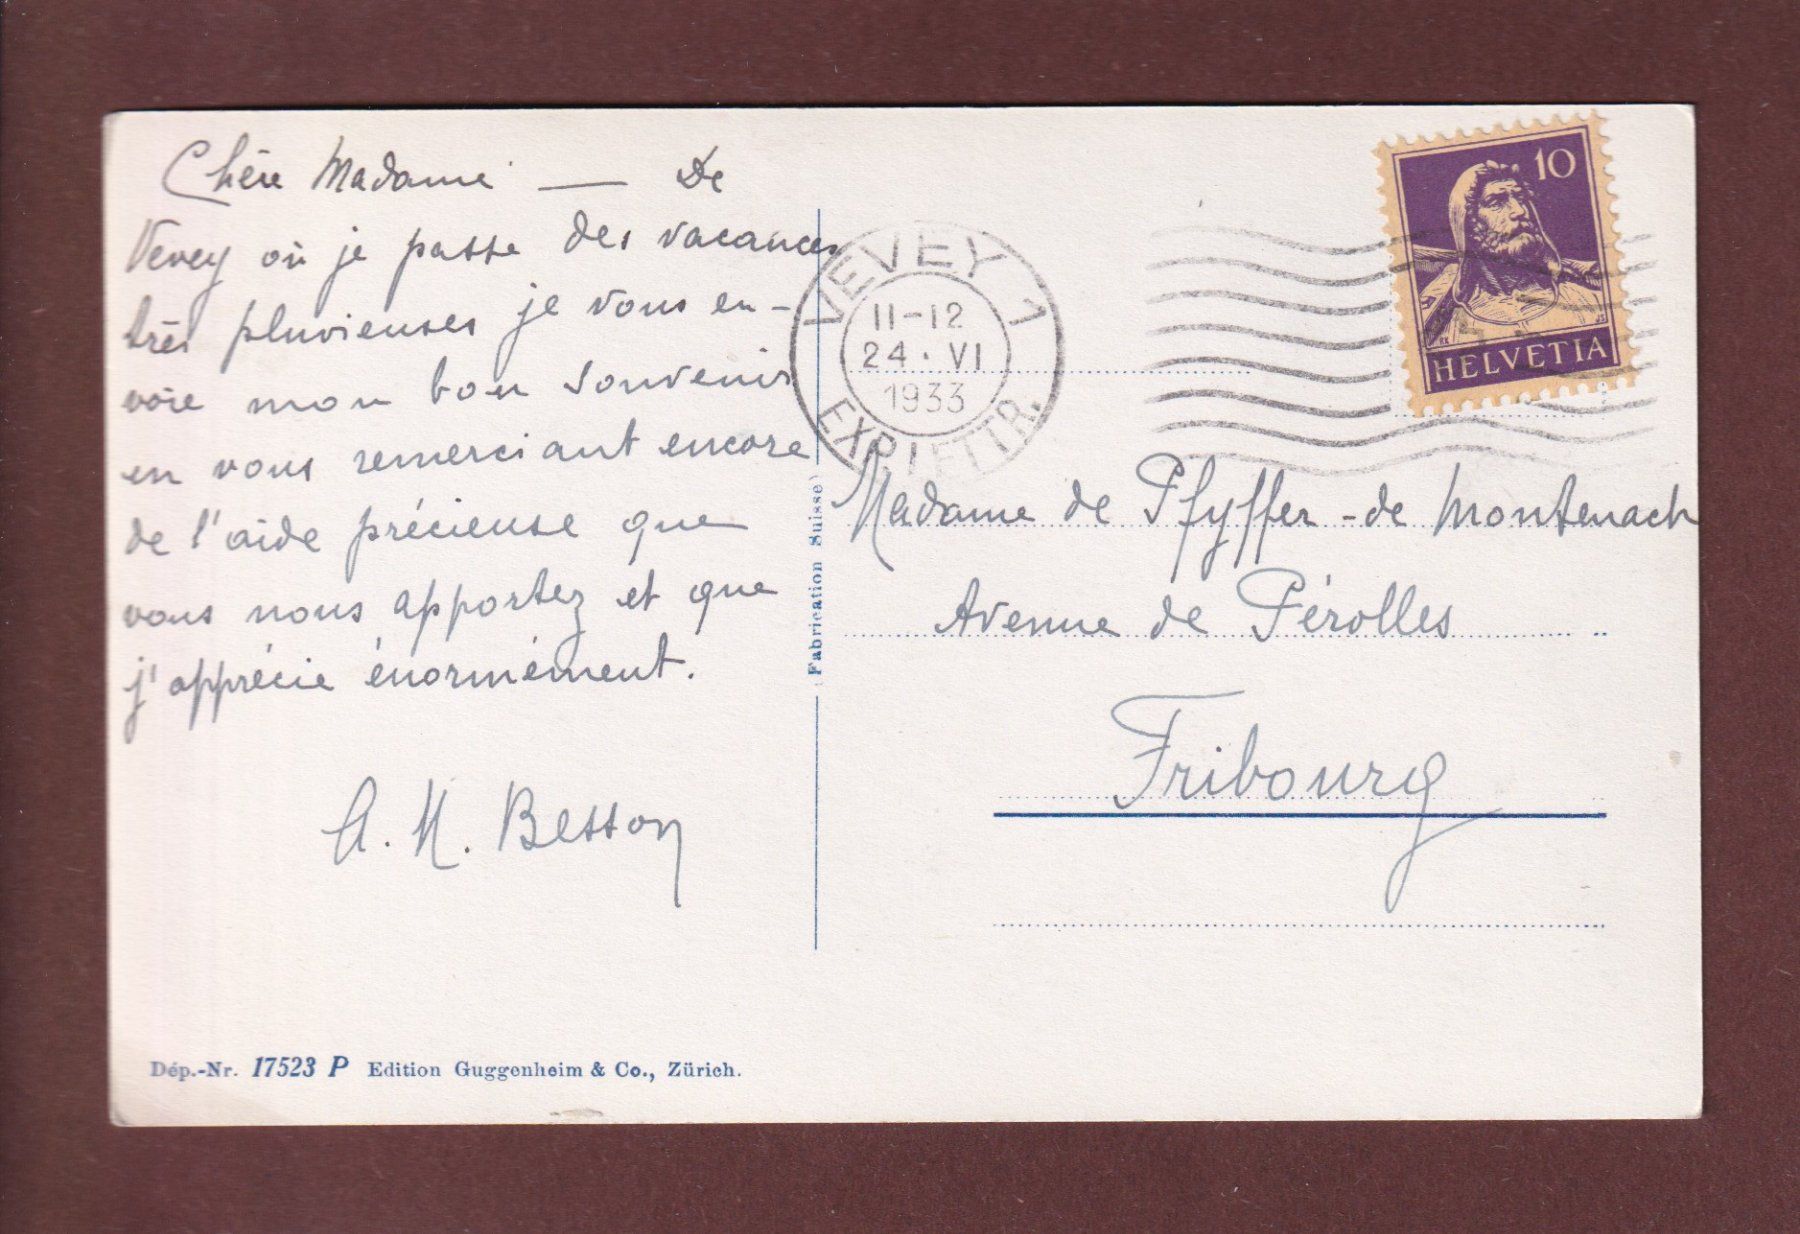 Chère Madame — De
Vevey où je passe des vacances
très pluvieuses je vous en-
voie mon bon souvenir
en vous remerciant encore
de l'aide précieuse que
vous nous apportez et que
j'apprécie énormément.
A. M. Besson
Dép.-Nr. 17523 P Edition Guggenheim & Co., Zürich.
(Fabrication Suisse)
VEVEY 1
11-12
24. VI
1933
EXP. LETTR.
10
HELVETIA
Madame de Pfyffer-de Montenach
Avenue de Pérolles
Fribourg